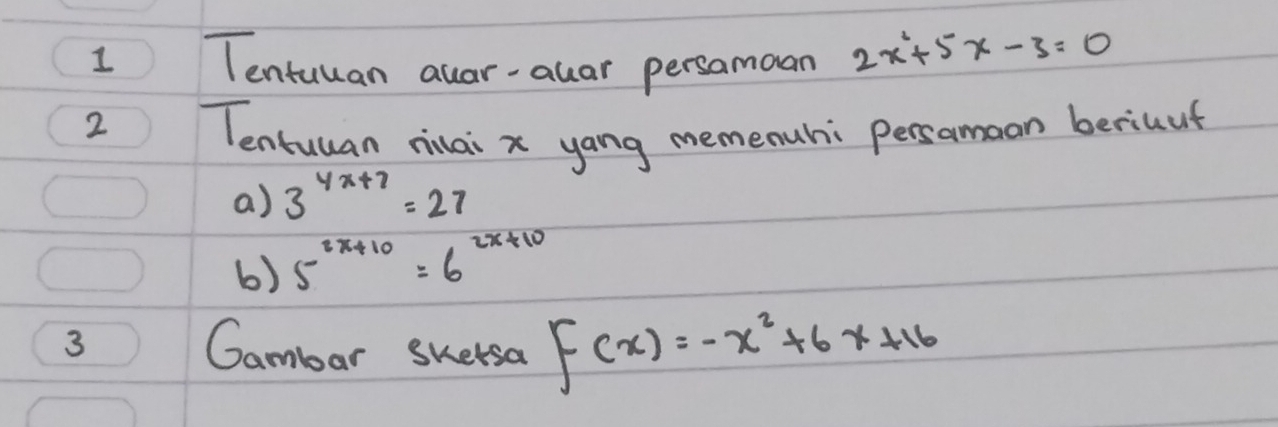 1 Tentukan akar-akar persamaan 2x²+5x-3=0
2 Tentukan nilai x yang memenuhi persamaan berikut
a) 3^{4x+7} = 27
b) 5^{2x+10} = 6^{2x+10}
3 Gambar sketsa F(x) = -x²+6x+16